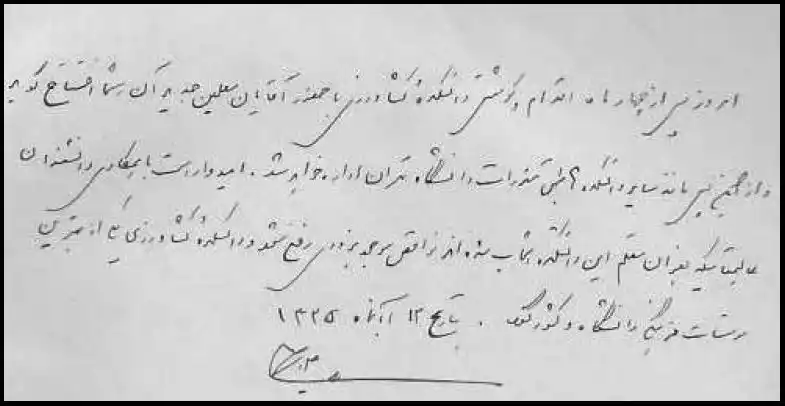 امروز پس از چهار ماه اقدام و کوشش دانشکده کشاورزی با حضور آقایان معلمین جدید آن رسماً افتتاح گردید
و از این پس مانند سایر دانشکده ها طبق مقررات دانشگاه تهران اداره خواهد شد . امیدوار است با همکاری دانشمندان
عالیمقامیکه بعنوان معلم این دانشکده انتخاب شده اند نواقص موجود بزودی رفع شود و دانشکده کشاورزی یکی از بهترین
موسسات فرهنگی دانشگاه و کشور گردد . بتاریخ ۱۳ آبانماه ۱۳۲۵